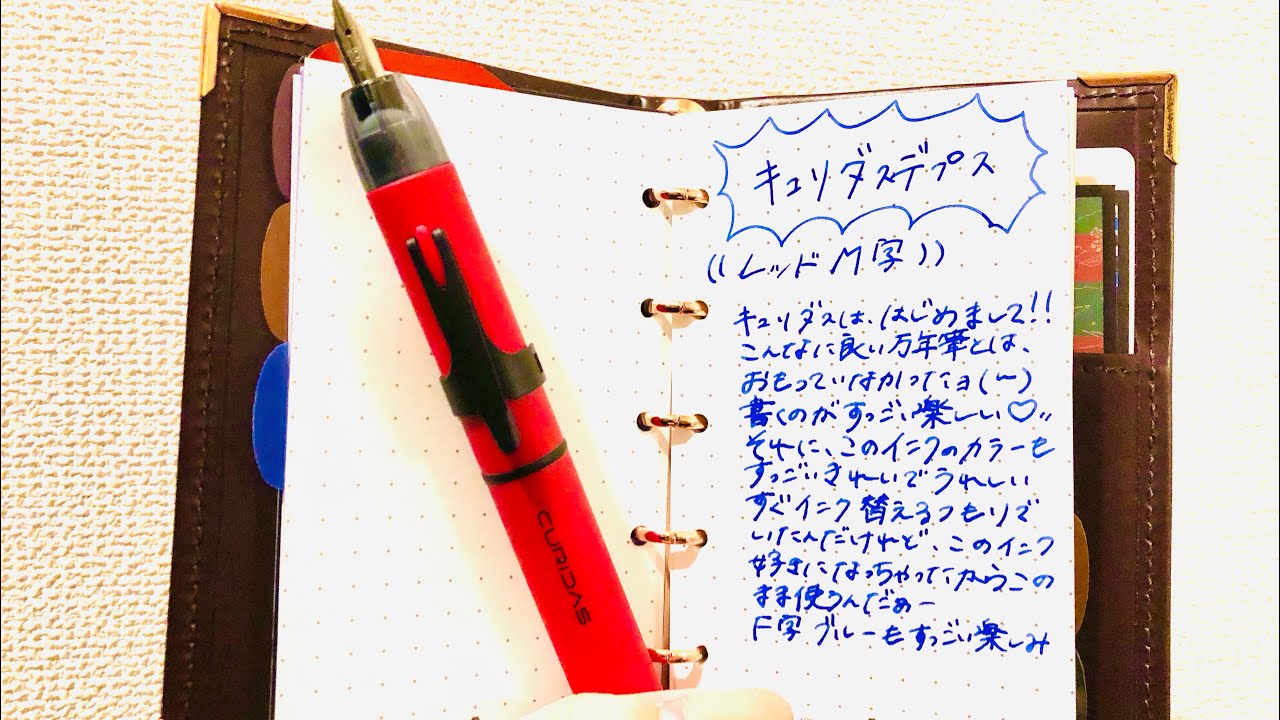 キュリダスデプス
((レッドM字))
キュリダスは、はじめまして!!
こんなに良い万年筆とは、
おもっていなかったョ(~)
書くのがすっごい楽しい♡
それに、このインクのカラーも
すっごいきれいでうれしい
すぐインク替えるつもりで
いたんだけれど、このインク
好きになっちゃったからこの
まま使うんだぁー
F字ブルーもすっごい楽しみ
CURIDAS